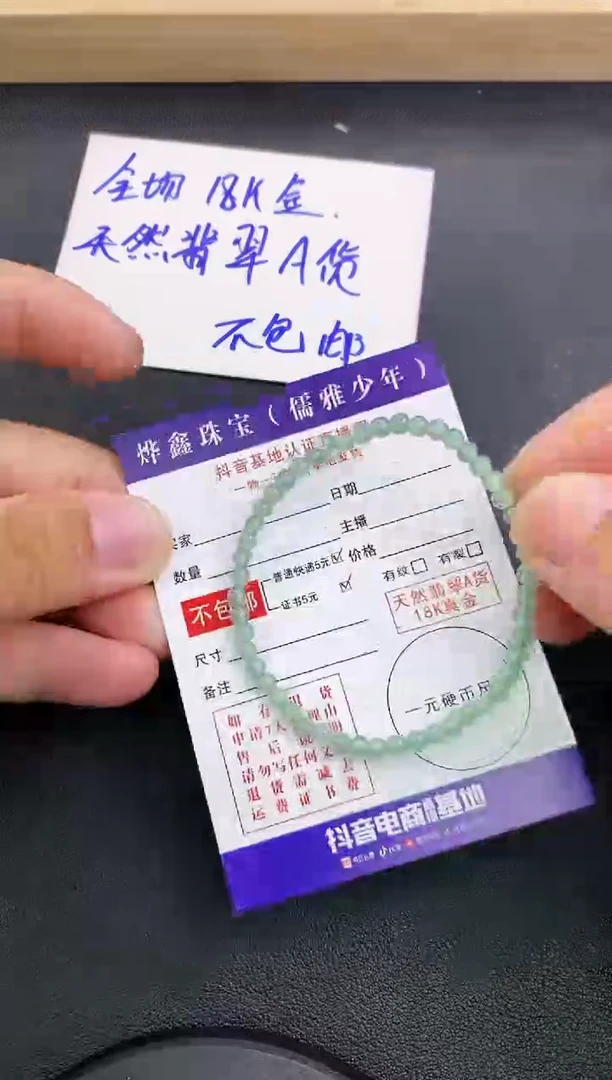 全场 18K金.
天然翡翠A货
不包邮
烨鑫珠宝(儒雅少年)
抖音基地认证直播间
日期
买家
主播
数量
普通快递5元
价格
不包邮
证书5元
有纹
有裂
天然翡翠A货
18K真金
尺寸
备注
一元硬币尺
如有退货
申请7天理由
售后
请勿写任何文
退货需减去
运费证书费
抖音电商基地